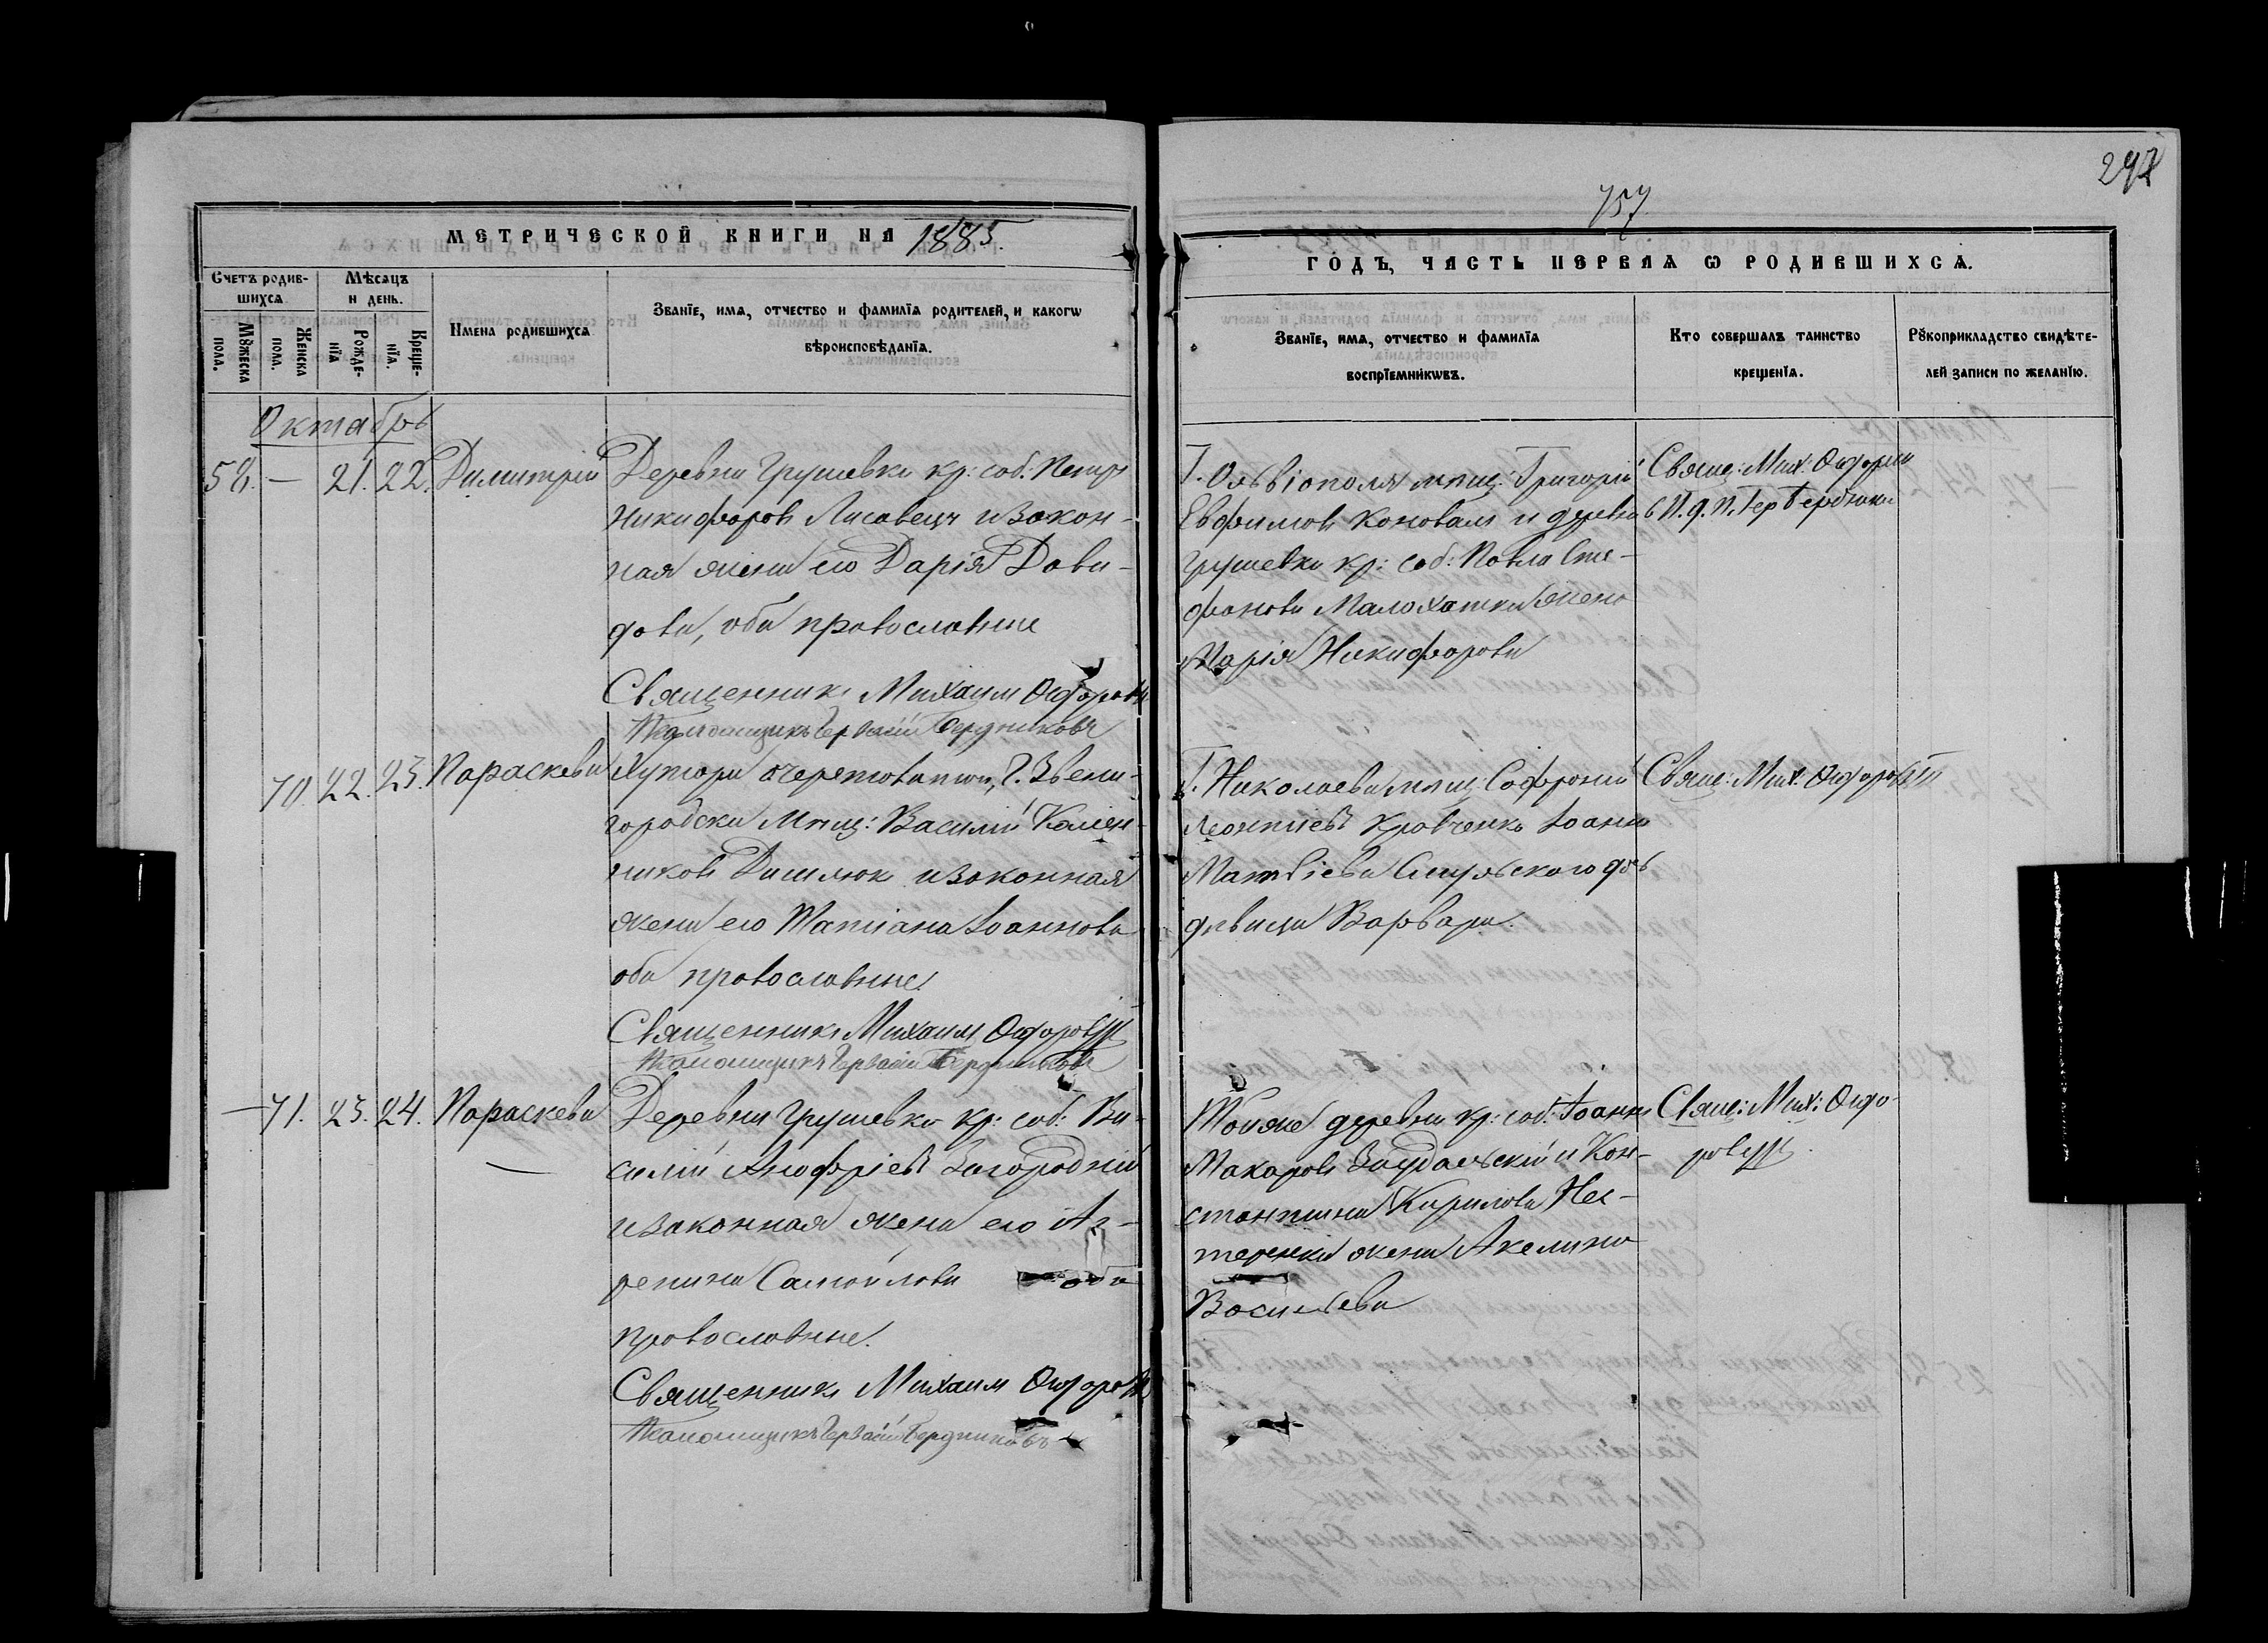 292
757
МЕТРИЧЕСКОЙ КНИГИ НА 1885.
ГОДЪ, ЧАСТЬ ПЕРВАѦ Ѡ РОДИВШИХСѦ.
Счетъ родив-
шихсѧ
Мѣсѧцъ
и день.
Мꙋжеска
пола.
Женска
пола.
Рожде-
нїѧ
Креще-
нїѧ.
Имена родившихсѧ
Званїе, имѧ, отчество и фамилїѧ родителей, и какогѡ
вѣроисповѣданїѧ.
Званїе, имѧ, отчество и фамилїѧ
воспрїемникѡвъ.
Кто совершалъ таинство
крещенїѧ.
Рꙋкоприкладство свидѣте-
лей записи по желанїю.
Октябрь
58. — 21. 22. Димитрій
Деревни Грушевки кр: соб: Петръ
Никифоровъ Лисавецъ и закон-
ная жена его Дарія Дави-
дова, оба православные
Священникъ Михаилъ
Псаломщикъ Гервасій Бердниковъ
Г. Ольвіополя мѣщ: Григорій
Евфимовъ Коновалъ и деревни
Грушевки кр: соб: Павла Сте-
фанова Малохатки жена
Марія Никифорова
Свящ: Мих:
70. 22. 23. Параскева
Хутора Очеретоватого, Г. Звени-
городски мѣщ: Василій
никовъ Дишлюкъ и законная
жена его Татіана Іоаннова
оба православные
Священникъ Михаилъ
Псаломщикъ Гервасій Бердниковъ
Г. Николаева мѣщ: Софроній
Леонтіевъ Кравченко Іоанна
Матвіева
дѣвица Варвара.
Свящ: Мих:
— 71. 23. 24. Параскева
Деревни Грушевки кр: соб: Ва-
силій Анофріевъ Загородній
и законная жена его Аг-
репина Самойлова оба
православные.
Священникъ Михаилъ
Псаломщикъ Гервасій Бердниковъ
Тойже деревни кр: соб: Іоаннъ
Макаровъ и Кон-
стантина Кирилова Нес-
теренка жена Акелина
Васильева
Свящ: Мих: